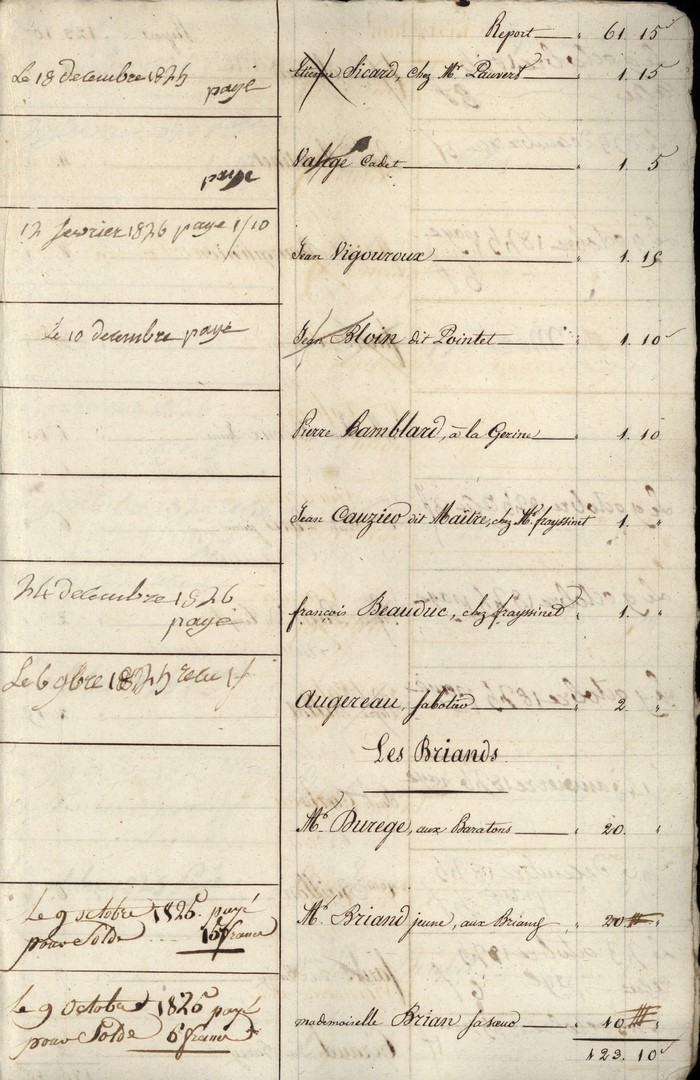 Report — " 61. 15
Le 18 decembre 1825
payé
Etienne Sicard, chez Mr. Pauvert " 1. 15
payé
Valige Cadet — " 1. 5
12 fevrier 1826 payé 1/10
Jean Vigouroux — " 1. 15
Le 10 decembre payé
Jean Bloin dit Pointet — " 1. 10
Pierre Bamblard, à la Gerine — " 1. 10
Jean Cauzieo dit Maître, chez Mr. frayssinet 1. "
24 decembre 1826
payé
françois Beauduc, chez frayssinet " 1. "
Le 6 9bre 1825 recu 1f
Augereau, sabotier — " 2 "
Les Briands
Mr. Durege, aux Baratons — " 20. "
Le 9 octobre 1825. payé
pour Solde .... 15 francs
Mr. Briand jeune, aux Briands, " 20 "
Le 9 Octobre 1825 payé
pour Solde 6 francs
mademoiselle Brian sa sœur — " 10 "
123. 10